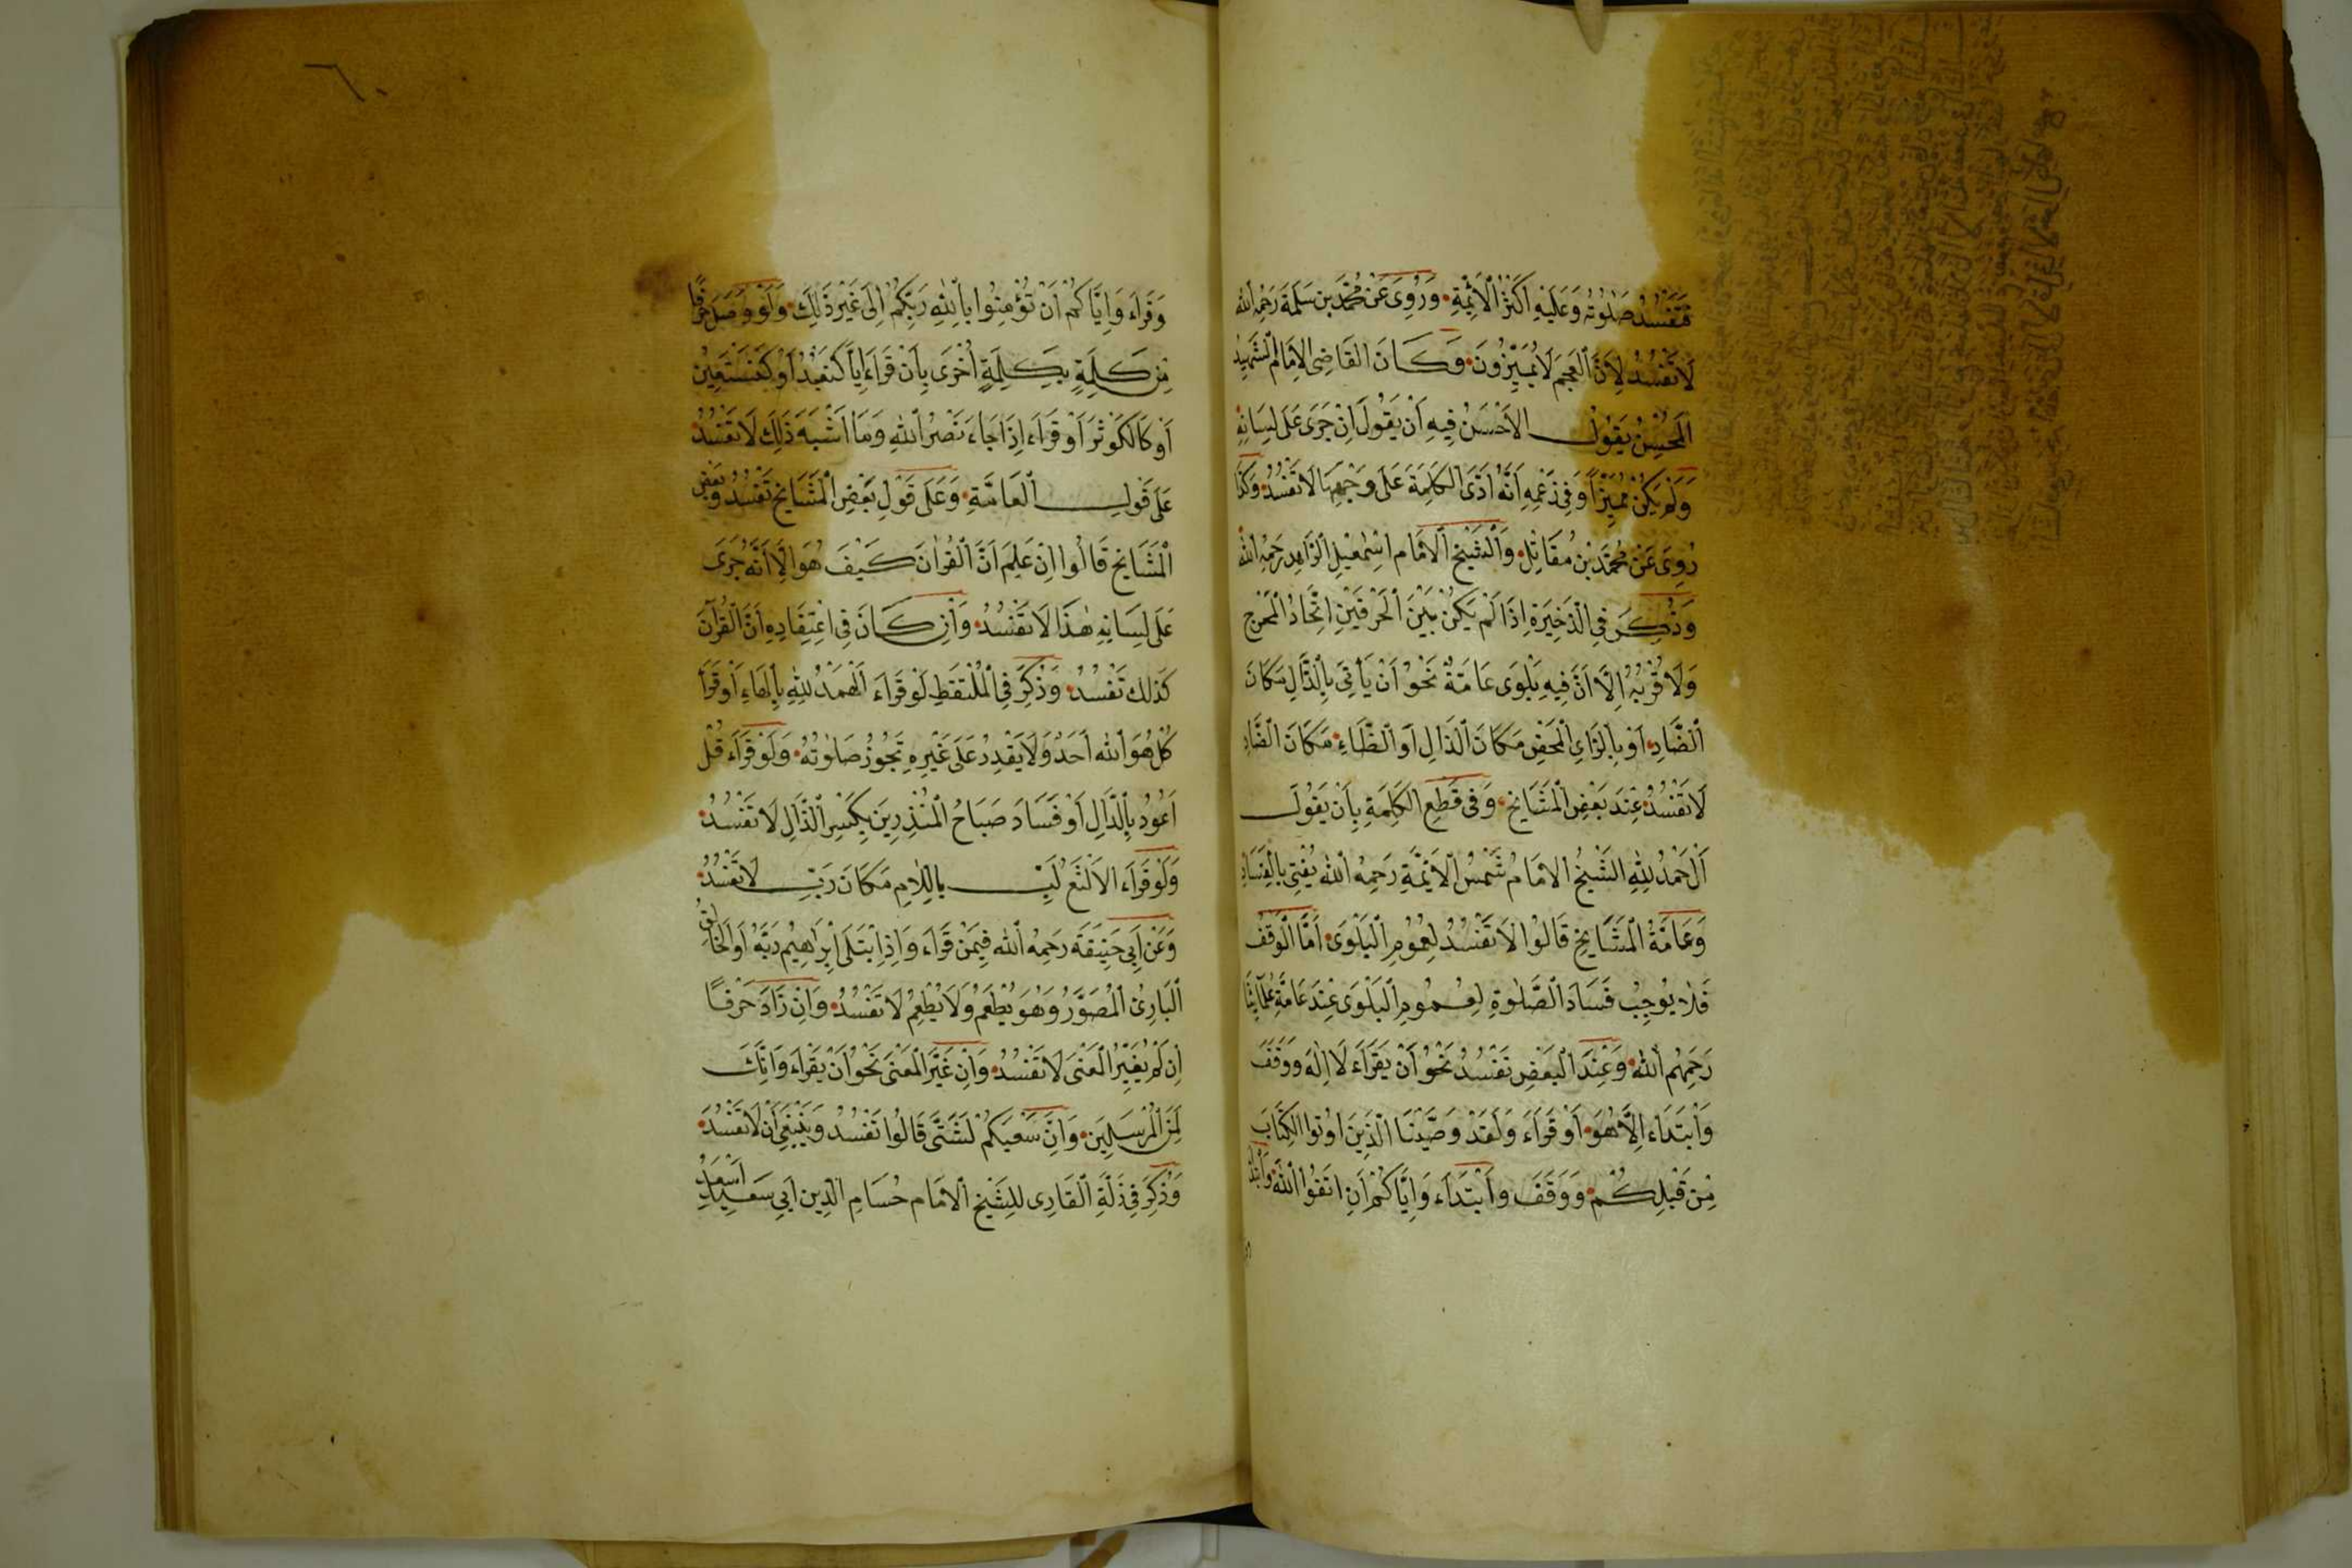 فَتَفْسُدُ صَلٰوتُهُ وَعَلَيْهِ اَكْثَرُ الْاَئِمَّةِ وَرُوِىَ عَنْ مُحَمَّدِ بْنِ سَلَمَةَ رَحِمَهُ اللّٰه
لَا تَفْسُدُ لِاَنَّ الْعَجَمَ لَا يُمَيِّزُونَ وَكَانَ الْقَاضِى الْاِمَامُ الشَّهِيدُ
الْمُحْسِنُ يَقُولُ الْاَحْسَنُ فِيهِ اَنْ يَقُولَ اِنْ جَرَى عَلَى لِسَانِهِ
وَلَمْ يَكُنْ مُمَيِّزًا وَفِى زَعْمِهِ اَنَّهُ اَدَّى الْكَلِمَةَ عَلَى وَجْهِهَا لَا تَفْسُدُ وَكَذَا
رُوِىَ عَنْ مُحَمَّدِ بْنِ مُقَاتِلٍ وَالشَّيْخِ الْاِمَامِ اِسْمٰعِيلِ الزَّاهِدِ رَحِمَهُ اللّٰه
وَذُكِرَ فِى الذَّخِيرَةِ اِذَا لَمْ يَكُنْ بَيْنَ الْحَرْفَيْنِ اِتِّحَادُ الْمَخْرَجِ
وَلَا قُرْبُهُ اِلَّا اَنَّ فِيهِ بَلْوَى عَامَّةً نَحْوَ اَنْ يَأْتِىَ بِالذَّالِ مَكَانَ
الضَّادِ اَوْ بِالزَّاىِ الْمَحْضِ مَكَانَ الذَّالِ اَوِ الظَّاءِ مَكَانَ الضَّادِ
لَا تَفْسُدُ عِنْدَ بَعْضِ الْمَشَايِخِ وَفِى قَطْعِ الْكَلِمَةِ بِاَنْ يَقُولَ
اَلْ حَمْدُ لِلّٰهِ الشَّيْخُ الْاِمَامُ شَمْسُ الْاَئِمَّةِ رَحِمَهُ اللّٰه يُفْتِى بِالْفَسَادِ
وَعَامَّةُ الْمَشَايِخِ قَالُوا لَا تَفْسُدُ لِعُمُومِ الْبَلْوَى اَمَّا الْوَقْفُ
فَلَا يُوجِبُ فَسَادَ الصَّلٰوةِ لِعُمُومِ الْبَلْوَى عِنْدَ عَامَّةِ عُلَمَائِنَا
رَحِمَهُمُ اللّٰه وَعِنْدَ الْبَعْضِ تَفْسُدُ نَحْوَ اَنْ يَقْرَأَ لَا اِلٰهَ وَوَقَفَ
وَابْتَدَاءَ اِلَّا هُوَ اَوْ قَرَاءَ وَلَقَدْ وَصَّيْنَا الَّذِينَ اُوتُوا الْكِتَابَ
مِنْ قَبْلِكُمْ وَوَقَفَ وَابْتَدَاءَ وَاِيَّاكُمْ اَنِ اتَّقُوا اللّٰهَ وَابْتَدَاَ
وَقَرَاءَ وَاِيَّاكُمْ اَنْ تُؤْمِنُوا بِاللّٰهِ رَبِّكُمْ اِلَى غَيْرِ ذٰلِكَ وَلَوْ وَصَلَ حَرْفًا
مِنْ كَلِمَةٍ بِكَلِمَةٍ اُخْرَى بِاَنْ قَرَاءَ اِيَّا كَنَعْبُدُ اَوْ كَنَسْتَعِينُ
اَوْ كَالْكَوْثَرَ اَوْ قَرَاءَ اِذَا جَاءَ نَصْرُ اللّٰهِ وَمَا اَشْبَهَ ذٰلِكَ لَا تَفْسُدُ
عَلَى قَوْلِ الْعَامَّةِ وَعَلَى قَوْلِ بَعْضِ الْمَشَايِخِ تَفْسُدُ وَبَعْضُ
الْمَشَايِخِ قَالُوا اِنْ عَلِمَ اَنَّ الْقُرْاٰنَ كَيْفَ هُوَ اِلَّا اَنَّهُ جَرَى
عَلَى لِسَانِهِ هٰذَا لَا تَفْسُدُ وَاِنْ كَانَ فِى اعْتِقَادِهِ اَنَّ الْقُرْاٰنَ
كَذٰلِكَ تَفْسُدُ وَذُكِرَ فِى الْمُلْتَقَطِ لَوْ قَرَاءَ الْهَمْدُ لِلّٰهِ بِالْهَاءِ اَوْ قَرَاَ
كُلْ هُوَ اللّٰه اَحَدٌ وَلَا يَقْدِرُ عَلَى غَيْرِهِ تَجُوزُ صَلٰوتُهُ وَلَوْ قَرَاءَ قُلْ
اَعُودُ بِالدَّالِ اَوْ فَسَادَ صَبَاحُ الْمُنْذِرِينَ بِكَسْرِ الذَّالِ لَا تَفْسُدُ
وَلَوْ قَرَاءَ الْاَلْثَغُ لَبِّ بِاللَّامِ مَكَانَ رَبِّ لَا تَفْسُدُ
وَعَنْ اَبِى حَنِيفَةَ رَحِمَهُ اللّٰه فِيمَنْ قَرَاءَ وَاِذِ ابْتَلَى اِبْرٰهِيمُ رَبَّهُ اَوِ الْخَالِقُ
الْبَارِئُ الْمُصَوَّرُ وَهُوَ يُطْعَمُ وَلَا يُطْعِمُ لَا تَفْسُدُ وَاِنْ زَادَ حَرْفًا
اِنْ لَمْ يُغَيِّرِ الْمَعْنَى لَا تَفْسُدُ وَاِنْ غَيَّرَ الْمَعْنَى نَحْوَ اَنْ يَقْرَاءَ وَاِنَّكَ
لَمِنَ الْمُرْسَلِينَ وَاِنَّ سَعْيَكُمْ لَشَتَّى قَالُوا تَفْسُدُ وَيَنْبَغِى اَنْ لَا تَفْسُدَ
وَذُكِرَ فِى زَلَّةِ الْقَارِى لِلشَّيْخِ الْاِمَامِ حُسَامِ الدِّينِ اَبِى سَعِيدٍ اَسْعَدَ